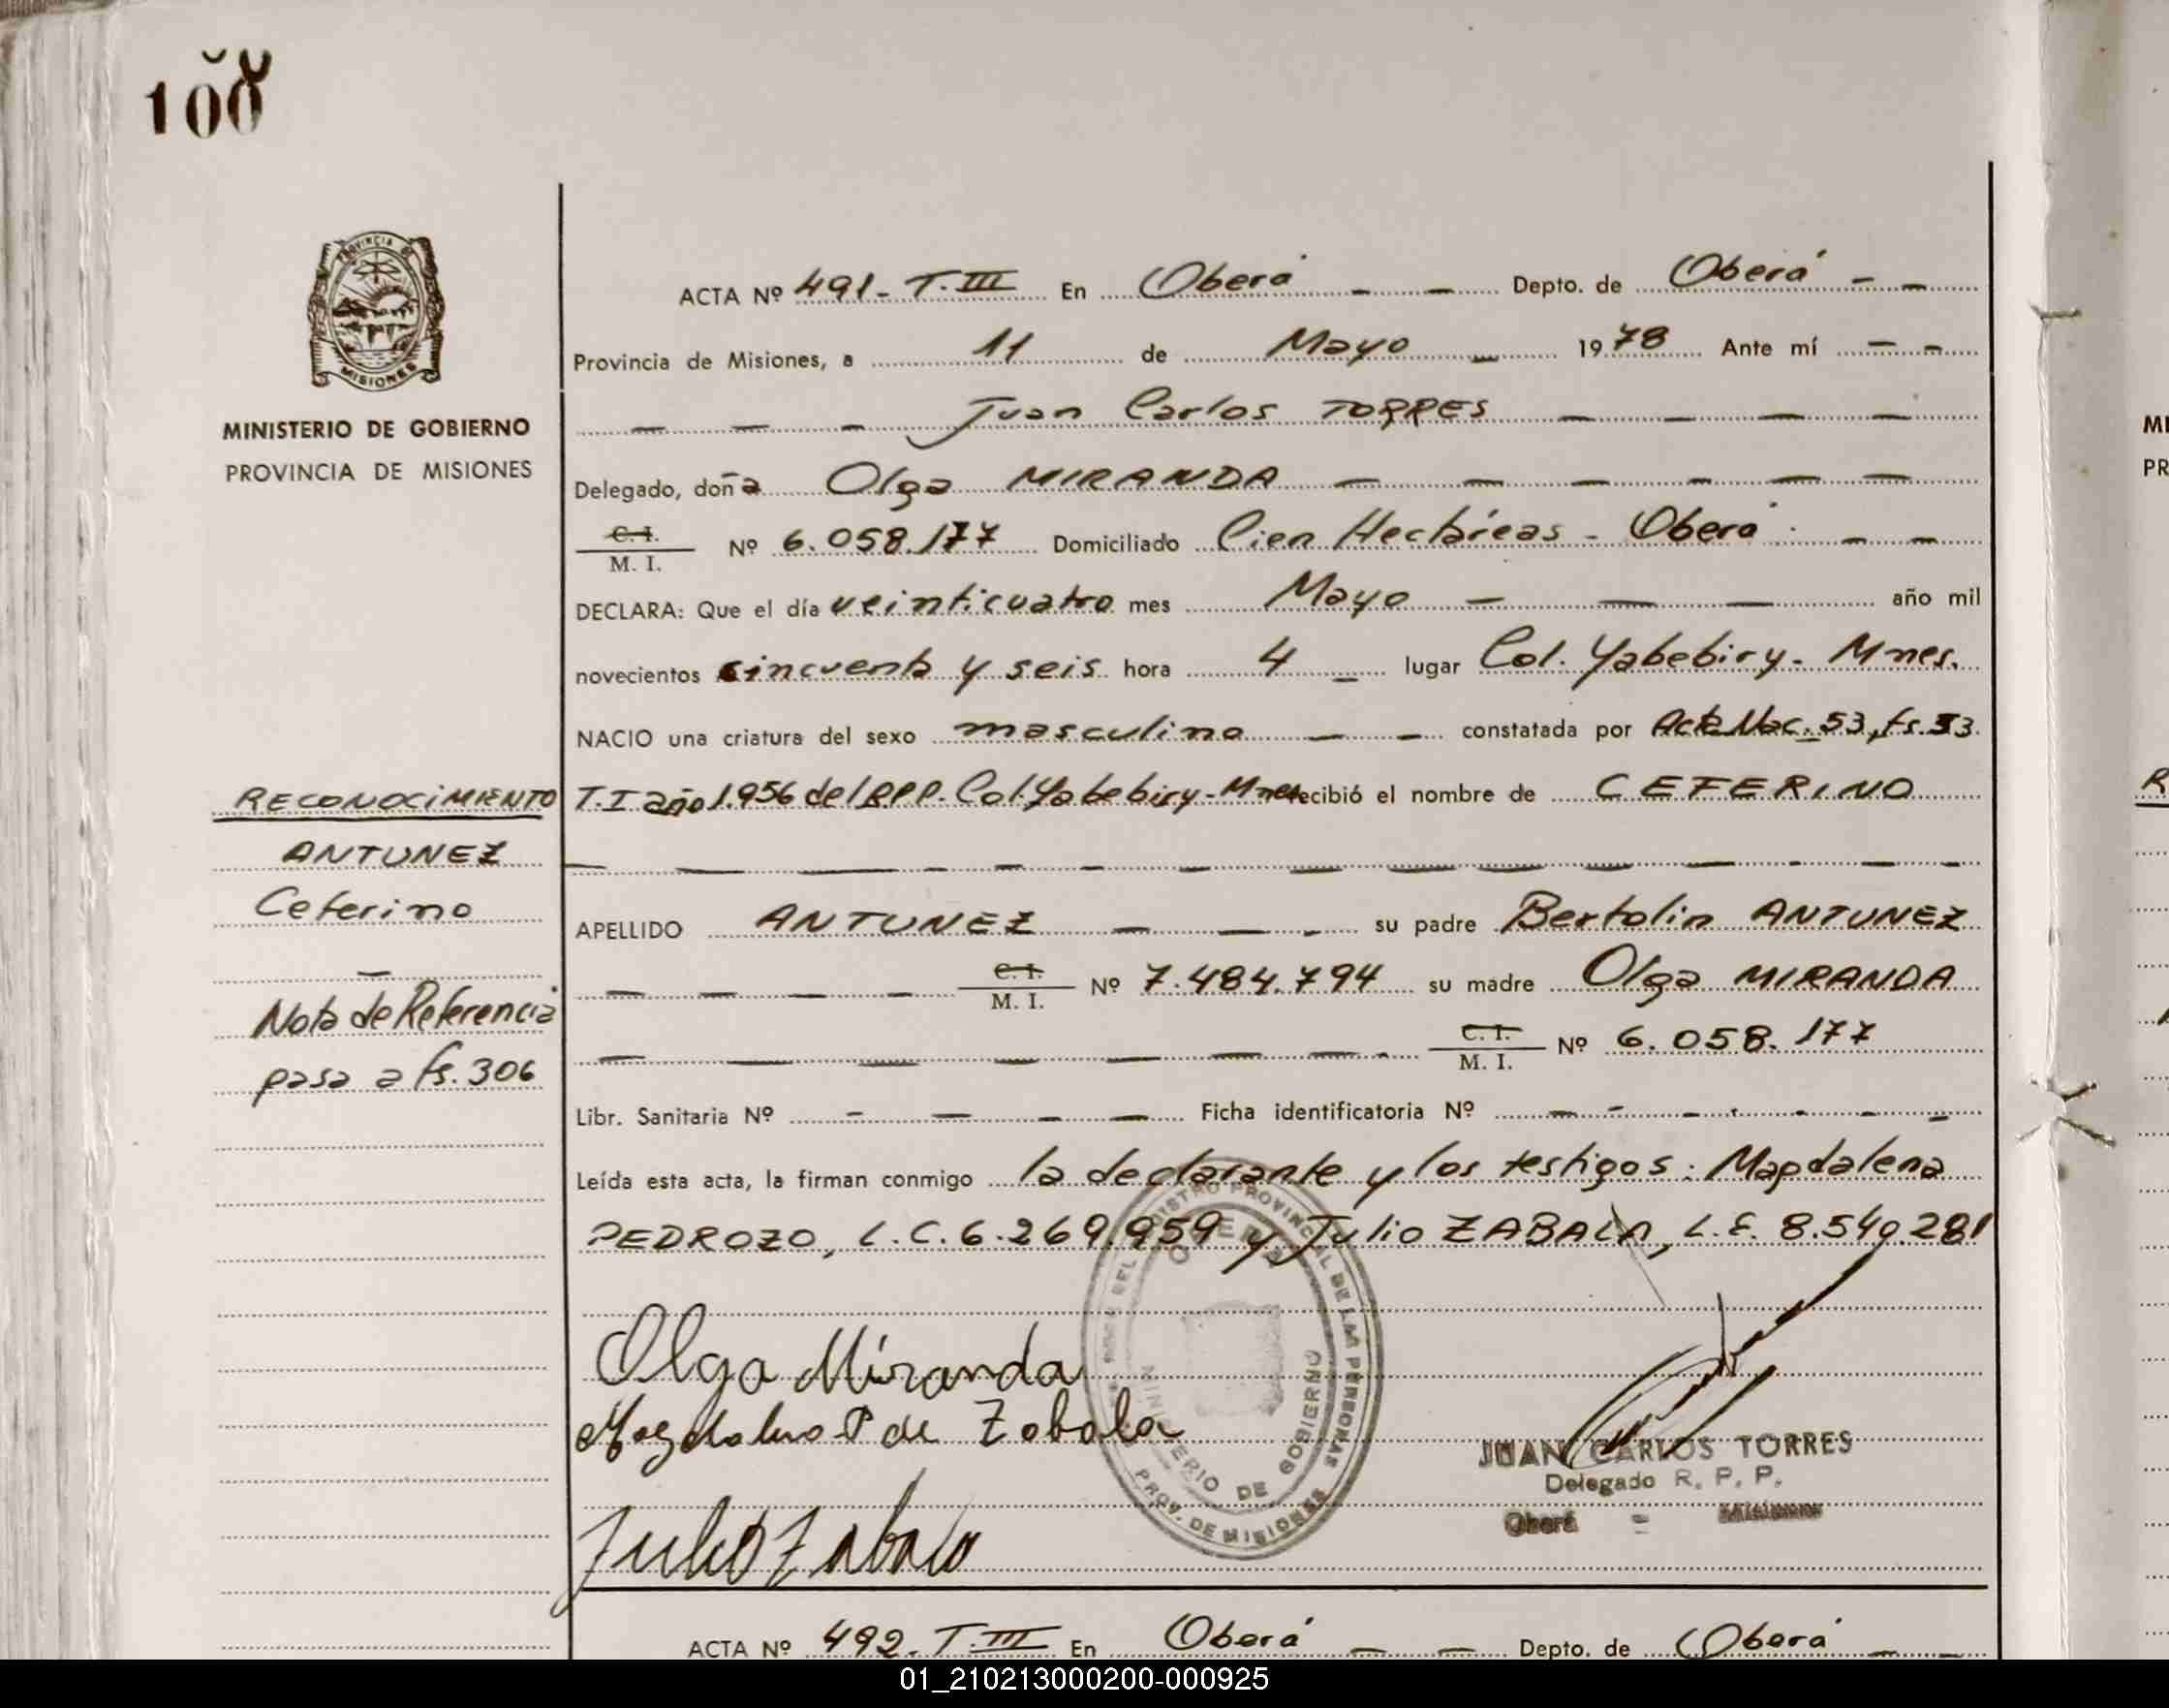 100
PROVINCIA DE
MISIONES
MINISTERIO DE GOBIERNO
PROVINCIA DE MISIONES
RECONOCIMIENTO
ANTUNEZ
Ceferino
Nota de Referencia
pasa a fs. 306
ACTA Nº 491- T. III En Oberá Depto. de Oberá
Provincia de Misiones, a 11 de Mayo 1978 Ante mí
Juan Carlos TORRES
Delegado, doña Olga MIRANDA
C. I.
M. I. Nº 6.058.177 Domiciliado Cien Hectáreas - Oberá
DECLARA: Que el día veinticuatro mes Mayo año mil
novecientos cincuenta y seis hora 4 lugar Col. Yabebiry - Mnes.
NACIO una criatura del sexo masculino constatada por Acta Nac. 53, fs. 53
T. I año 1.956 del RPP. Col. Yabebiry - Mnes recibió el nombre de CEFERINO
APELLIDO ANTUNEZ su padre Bertolin ANTUNEZ
C. I.
M. I. Nº 7.484.794 su madre Olga MIRANDA
C. I.
M. I. Nº 6.058.177
Libr. Sanitaria Nº Ficha identificatoria Nº
Leída esta acta, la firman conmigo la declarante y los testigos: Magdalena
PEDROZO, L.C. 6.269.959 y Julio ZABALA, L.E. 8.540.281
Olga Miranda
Magdalena P de Zabala
Julio Zabala
REGISTRO PROVINCIAL DE LAS PERSONAS
OBERA
MINISTERIO DE GOBIERNO
PROV. DE MISIONES
JUAN CARLOS TORRES
Delegado R. P. P.
Oberá - Misiones
ACTA Nº 492. T. III En Oberá Depto. de Oberá
MI
PR
R
01_210213000200-000925